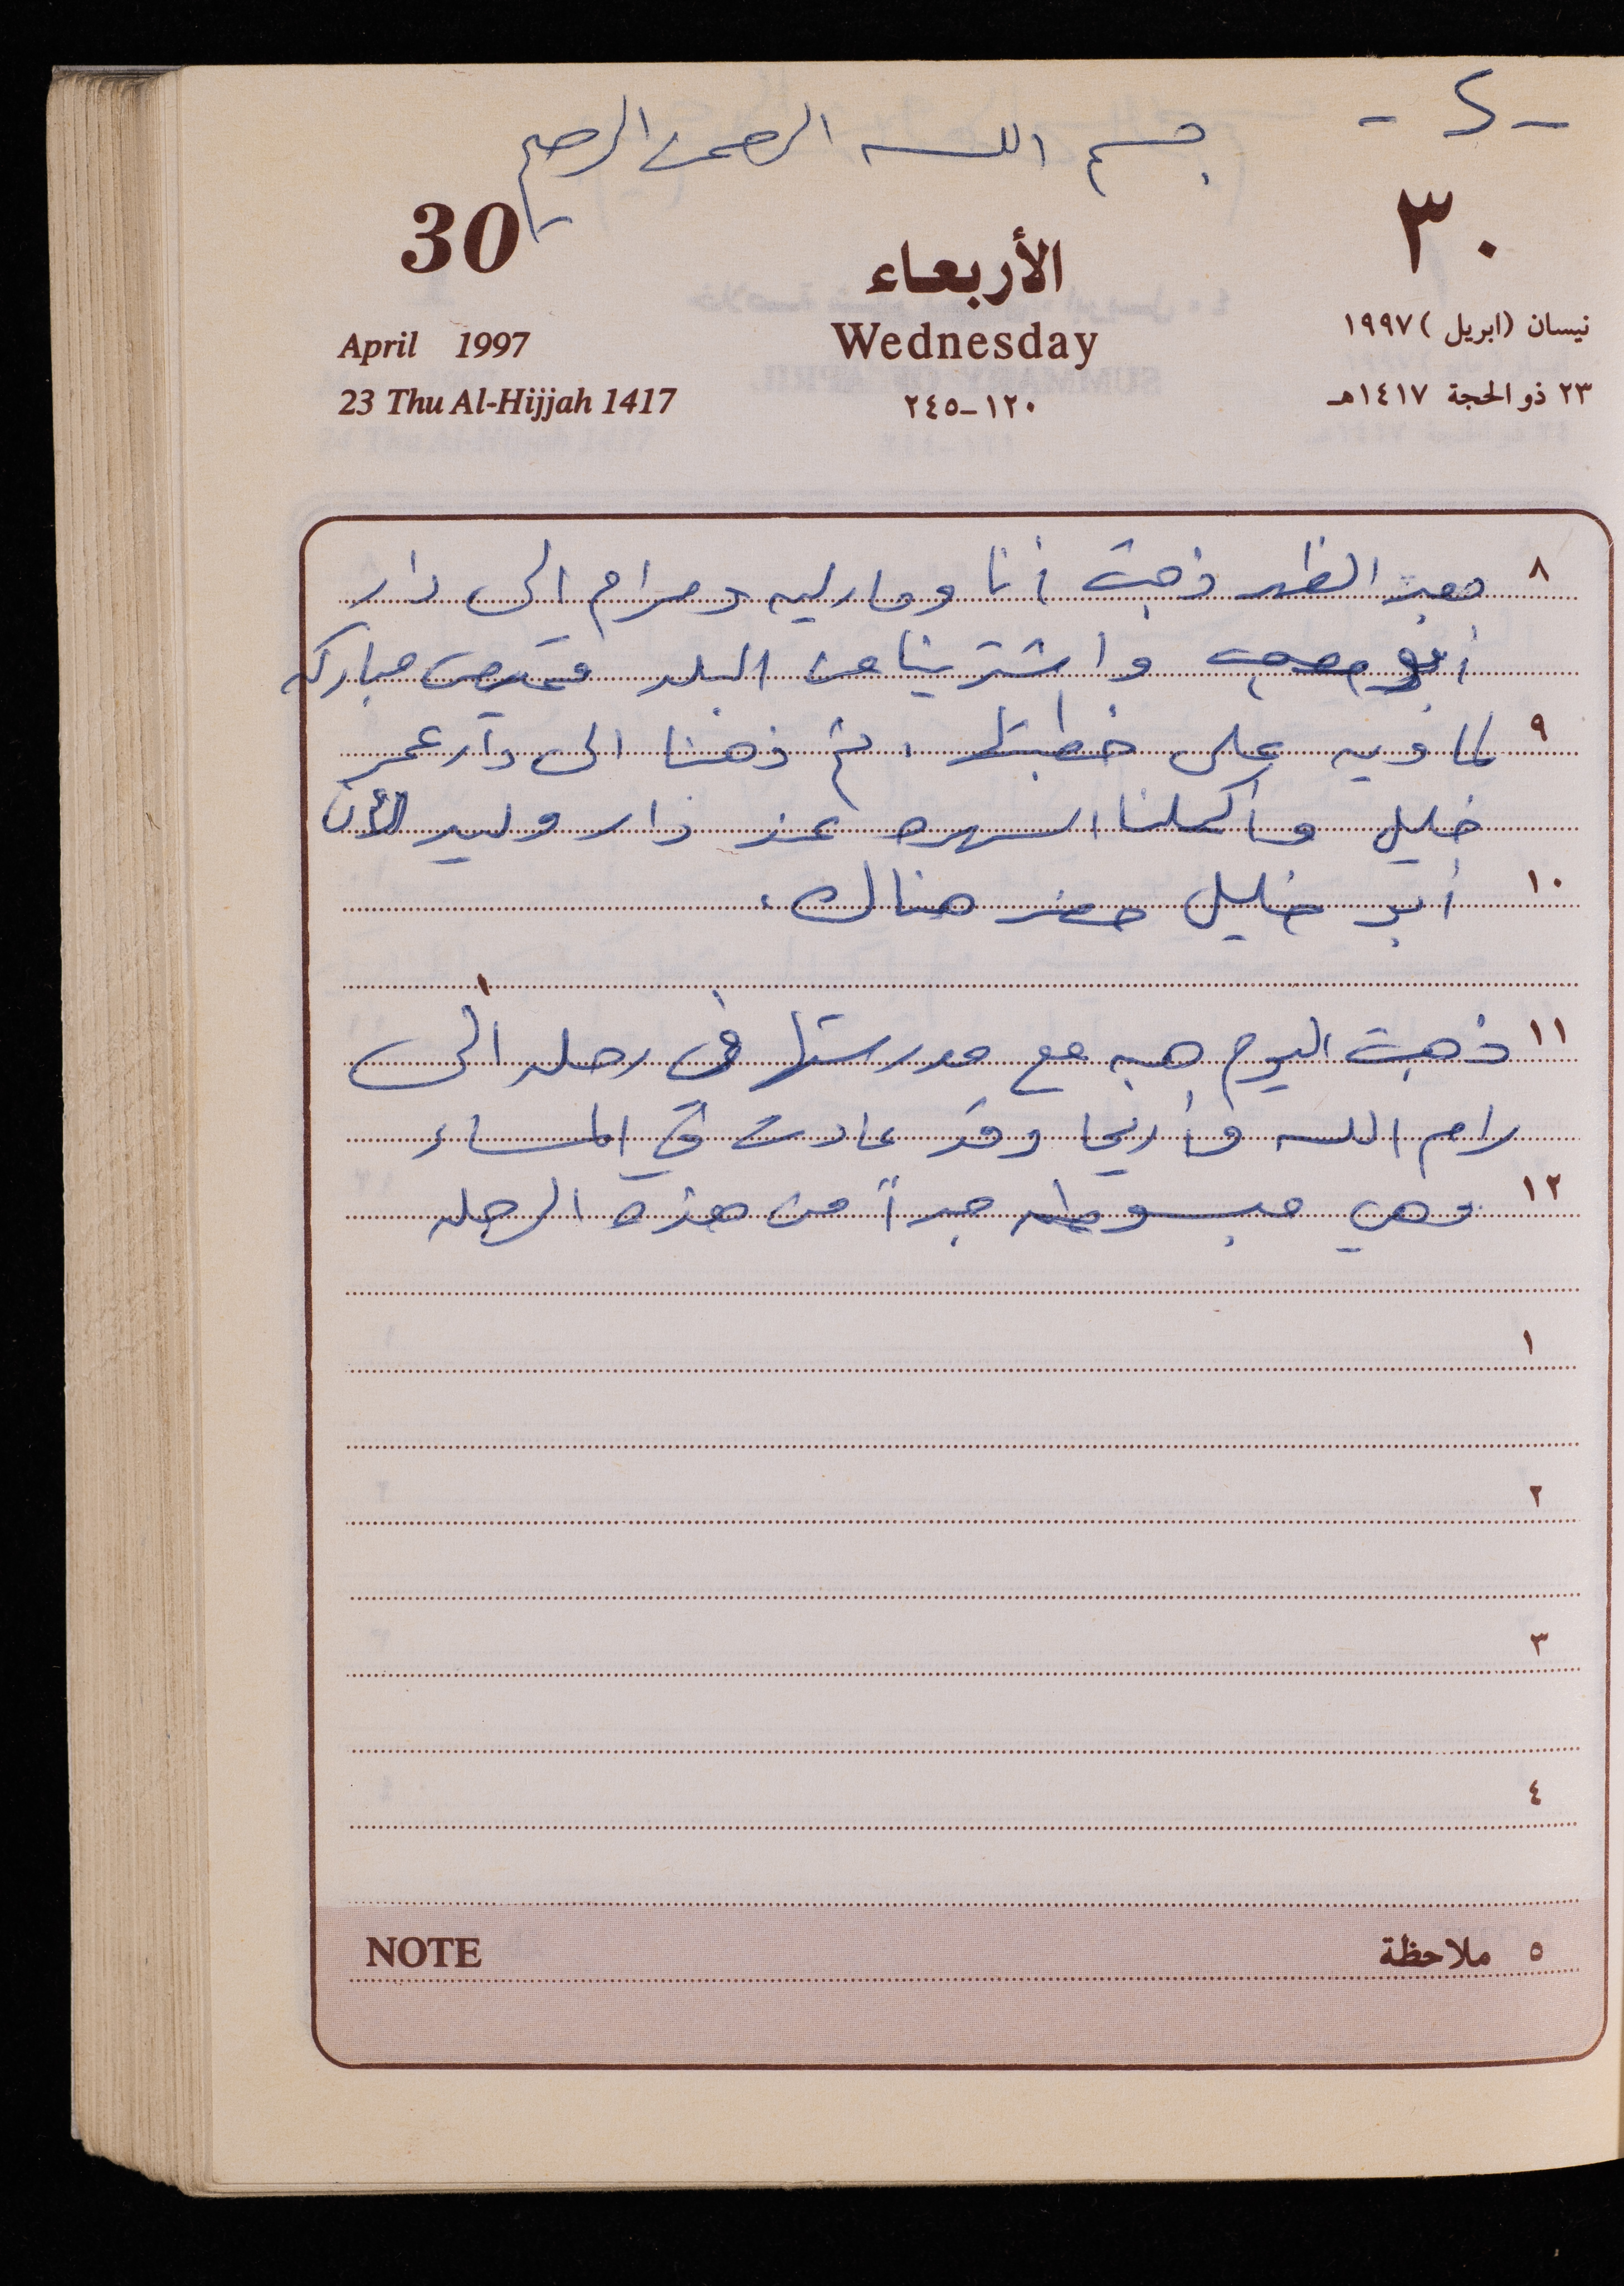 - ٢ -
بسم الله الرحمن الرحيم
٣٠
الأربعاء
30
نيسان (ابريل) ١٩٩٧
Wednesday
April 1997
٢٣ ذو الحجة ١٤١٧هـ
١٢٠-٢٤٥
23 Thu Al-Hijjah 1417
٨ وبعد الظهر ذهبت أنا وماريه ومرام الى دار
أبو مصعب واشترينا من البلد قميص مباركه
٩ على خطبتها . ثم ذهبنا الى دار عمر
خليل وأكملنا السهره عند دار وليد لأن
١٠ أبو خليل حضر هناك .
١١ ذهبت اليوم هبه مع مدرستها في رحله الى
رام الله وأريحا وقد عادت في المساء
١٢ وهي مبسوطه جداً من هذه الرحله
١
٢
٣
٤
٥ ملاحظة NOTE